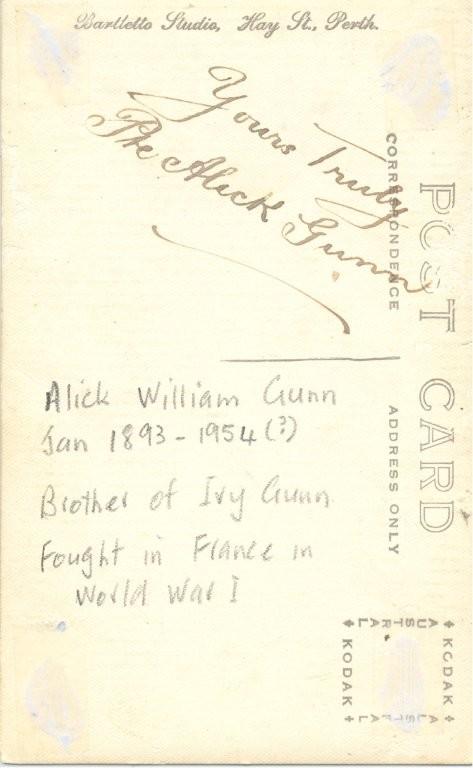 Bartletto Studio, Hay St., Perth.
Yours Truly
Pte Alick Gunn
POST CARD
CORRESPONDENCE
ADDRESS ONLY
Alick William Gunn
Jan 1893 - 1954 (?)
Brother of Ivy Gunn
Fought in France in
World War I
KODAK
AUSTRAL
KODAK